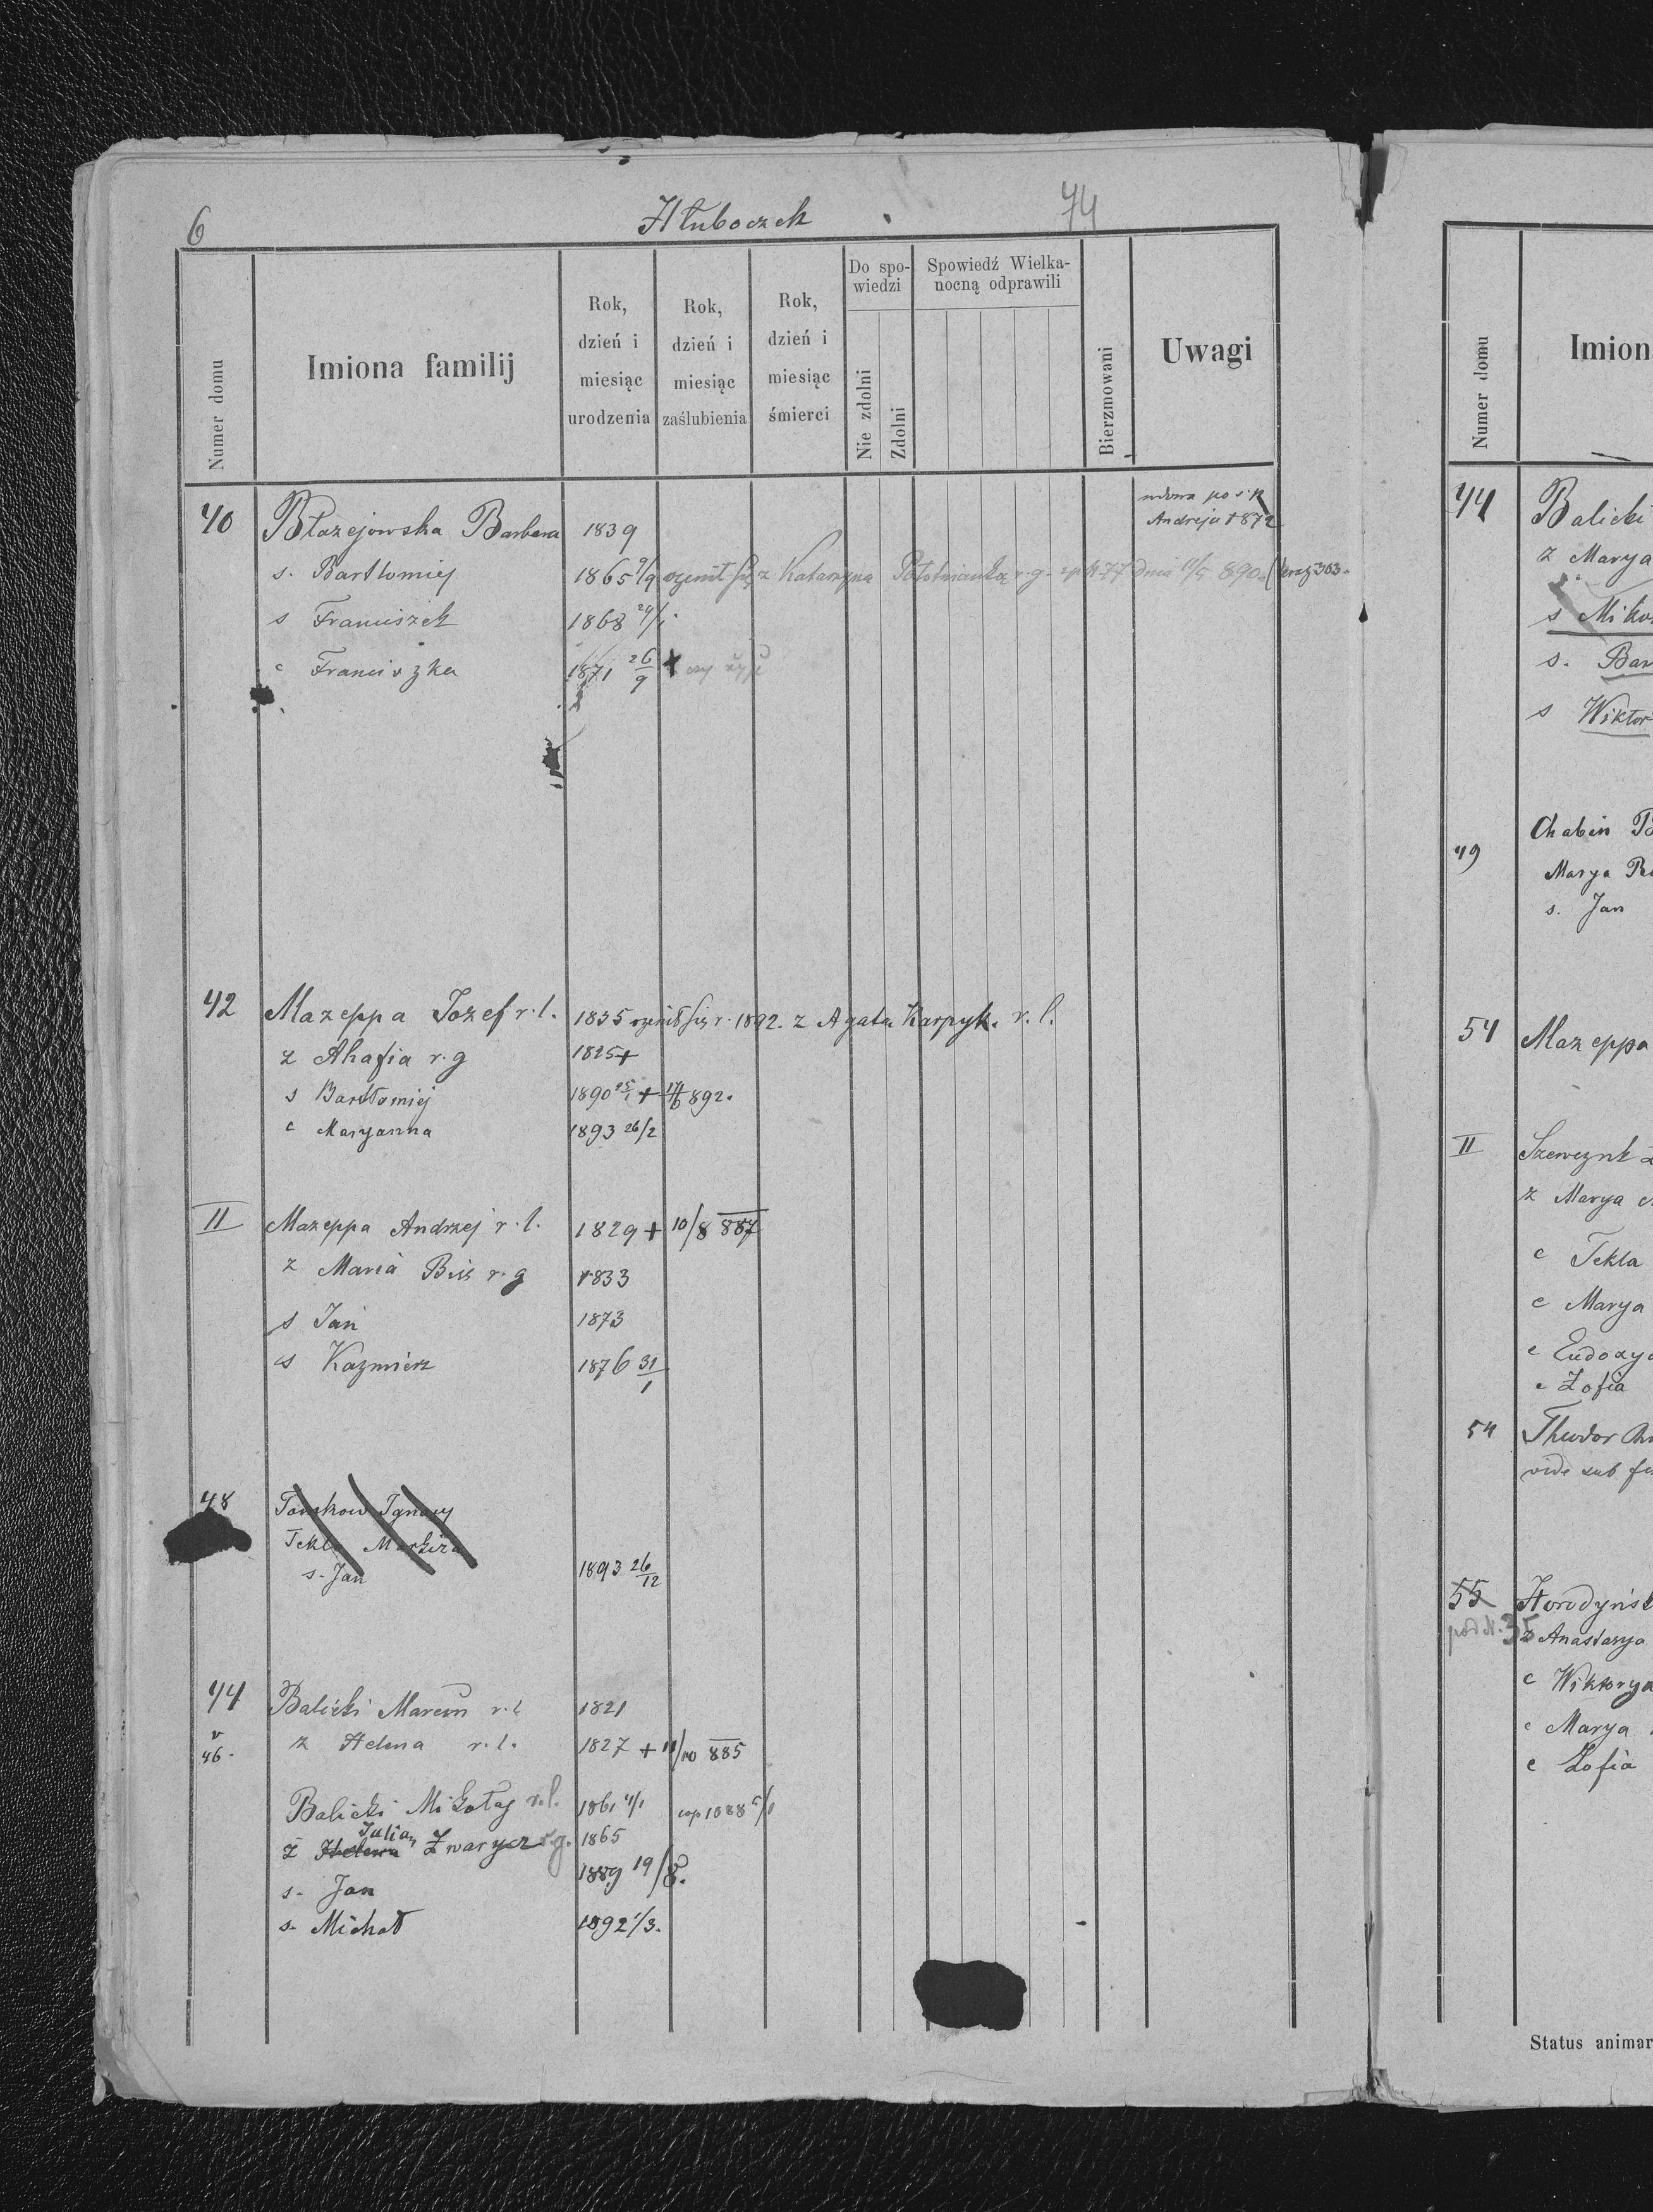 6 Hłuboczek 74
Numer domu
Imiona familij
Rok, dzień i miesiąc urodzenia
Rok, dzień i miesiąc zaślubienia
Rok, dzień i miesiąc śmierci
Do spo-
wiedzi
Nie zdolni
Zdolni
Spowiedź Wielka-
nocną odprawili
Bierzmowani
Uwagi
wdowa po ś.p.
Andreju † 872
40 Błazejowska Barbara 1839
s. Bartłomiej 1865 9/9 ożenił się z Katarzyna r.g. 77 dnia 890.
s Franciszek 1868 24/1
c Franciszka 1871 26/9 + czy żyje
42 Mazeppa Jozef r.l. 1835 ożenił się r. 1892. z Agata Karpyk. r. l.
z Ahafia r.g 1825+
s Bartłomiej 1890 25/1 + 17/6 892.
c Maryanna 1893 26/2
II Mazeppa Andrzej r.l. 1829 + 10/8 887
z Maria r.g 1833
s Jan 1873
s Kazmierz 1876 31/1
48 Tomkow Ignacy
Tekla
s. Jan 1893 26/12
44 Balicki Marcin r.l 1821
v 46. z Helena r.l. 1827 + 11/10 885
Balicki Mikołaj r.l. 1861 4/1 cop 1888
Julia
z Helena Zwarycz r.g. 1865
s. Jan 1889 19/8.
s. Michał 1892 1/3.
Numer domu
Imion
44 Balicki
z Marya
s Miko
s. Bar
s Wiktor
Chabin
49 Marya
s. Jan
54 Mazeppa
II Szewczuk
z Marya
c Tekla
c Marya
c Eudoxya
c Zofia
54 Theodor
vide sub
55 Horodyńsk
pod N. 35 z Anastazya
c Wiktorya
c Marya
c Zofia
Status animar